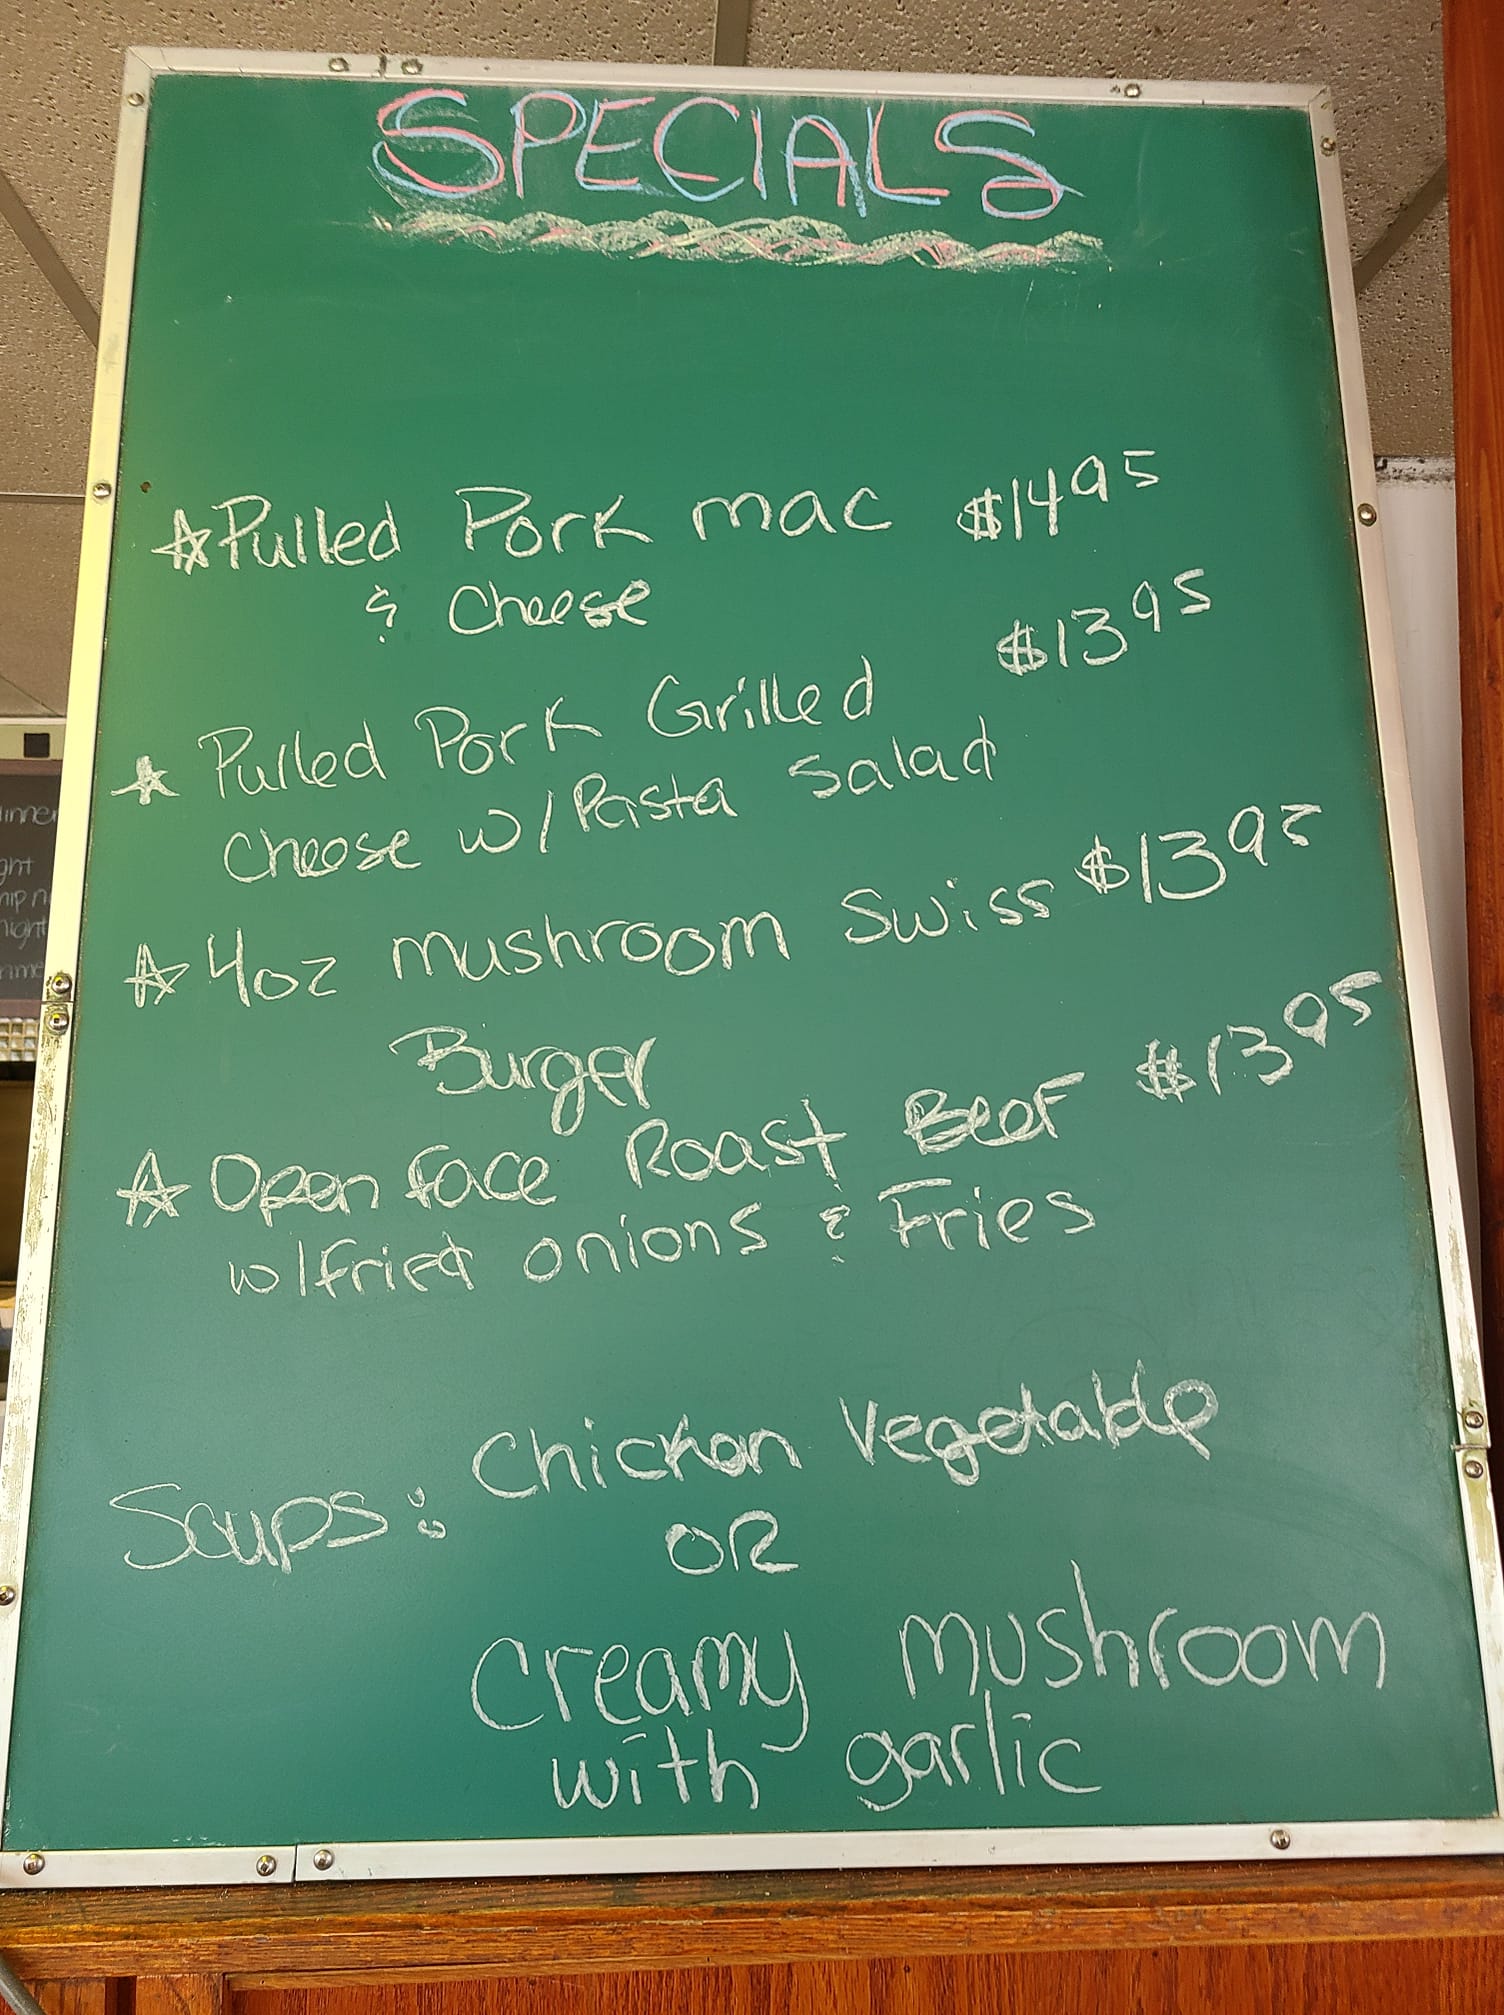 SPECIALS
☆Pulled Pork mac $14.95
& Cheese
$13.95
☆ Pulled Pork Grilled
Cheese w/Pasta Salad
☆ 4oz mushroom Swiss $13.95
Burger
☆ Open face Roast Beef $13.95
w/fried onions & Fries
Soups: Chicken Vegetable
OR
creamy mushroom
with garlic